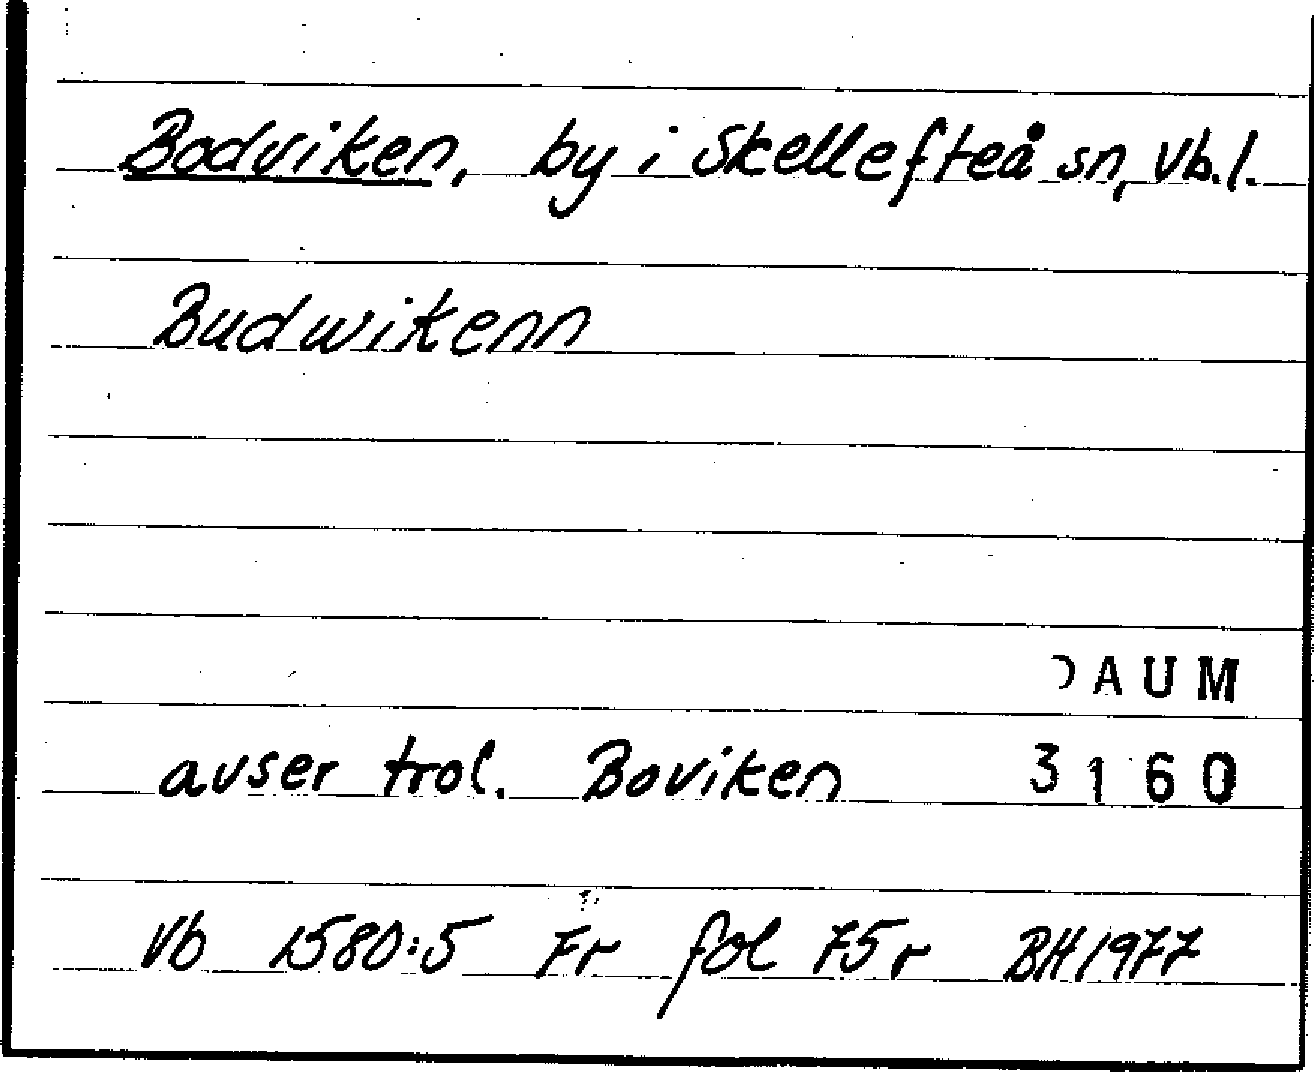 Bodviken, by i Skellefteå sn, Vb.l.
Budwikenn
DAUM
avser trol. Boviken 3160
Vb 1580:5 Fr fol 75r BH 1977